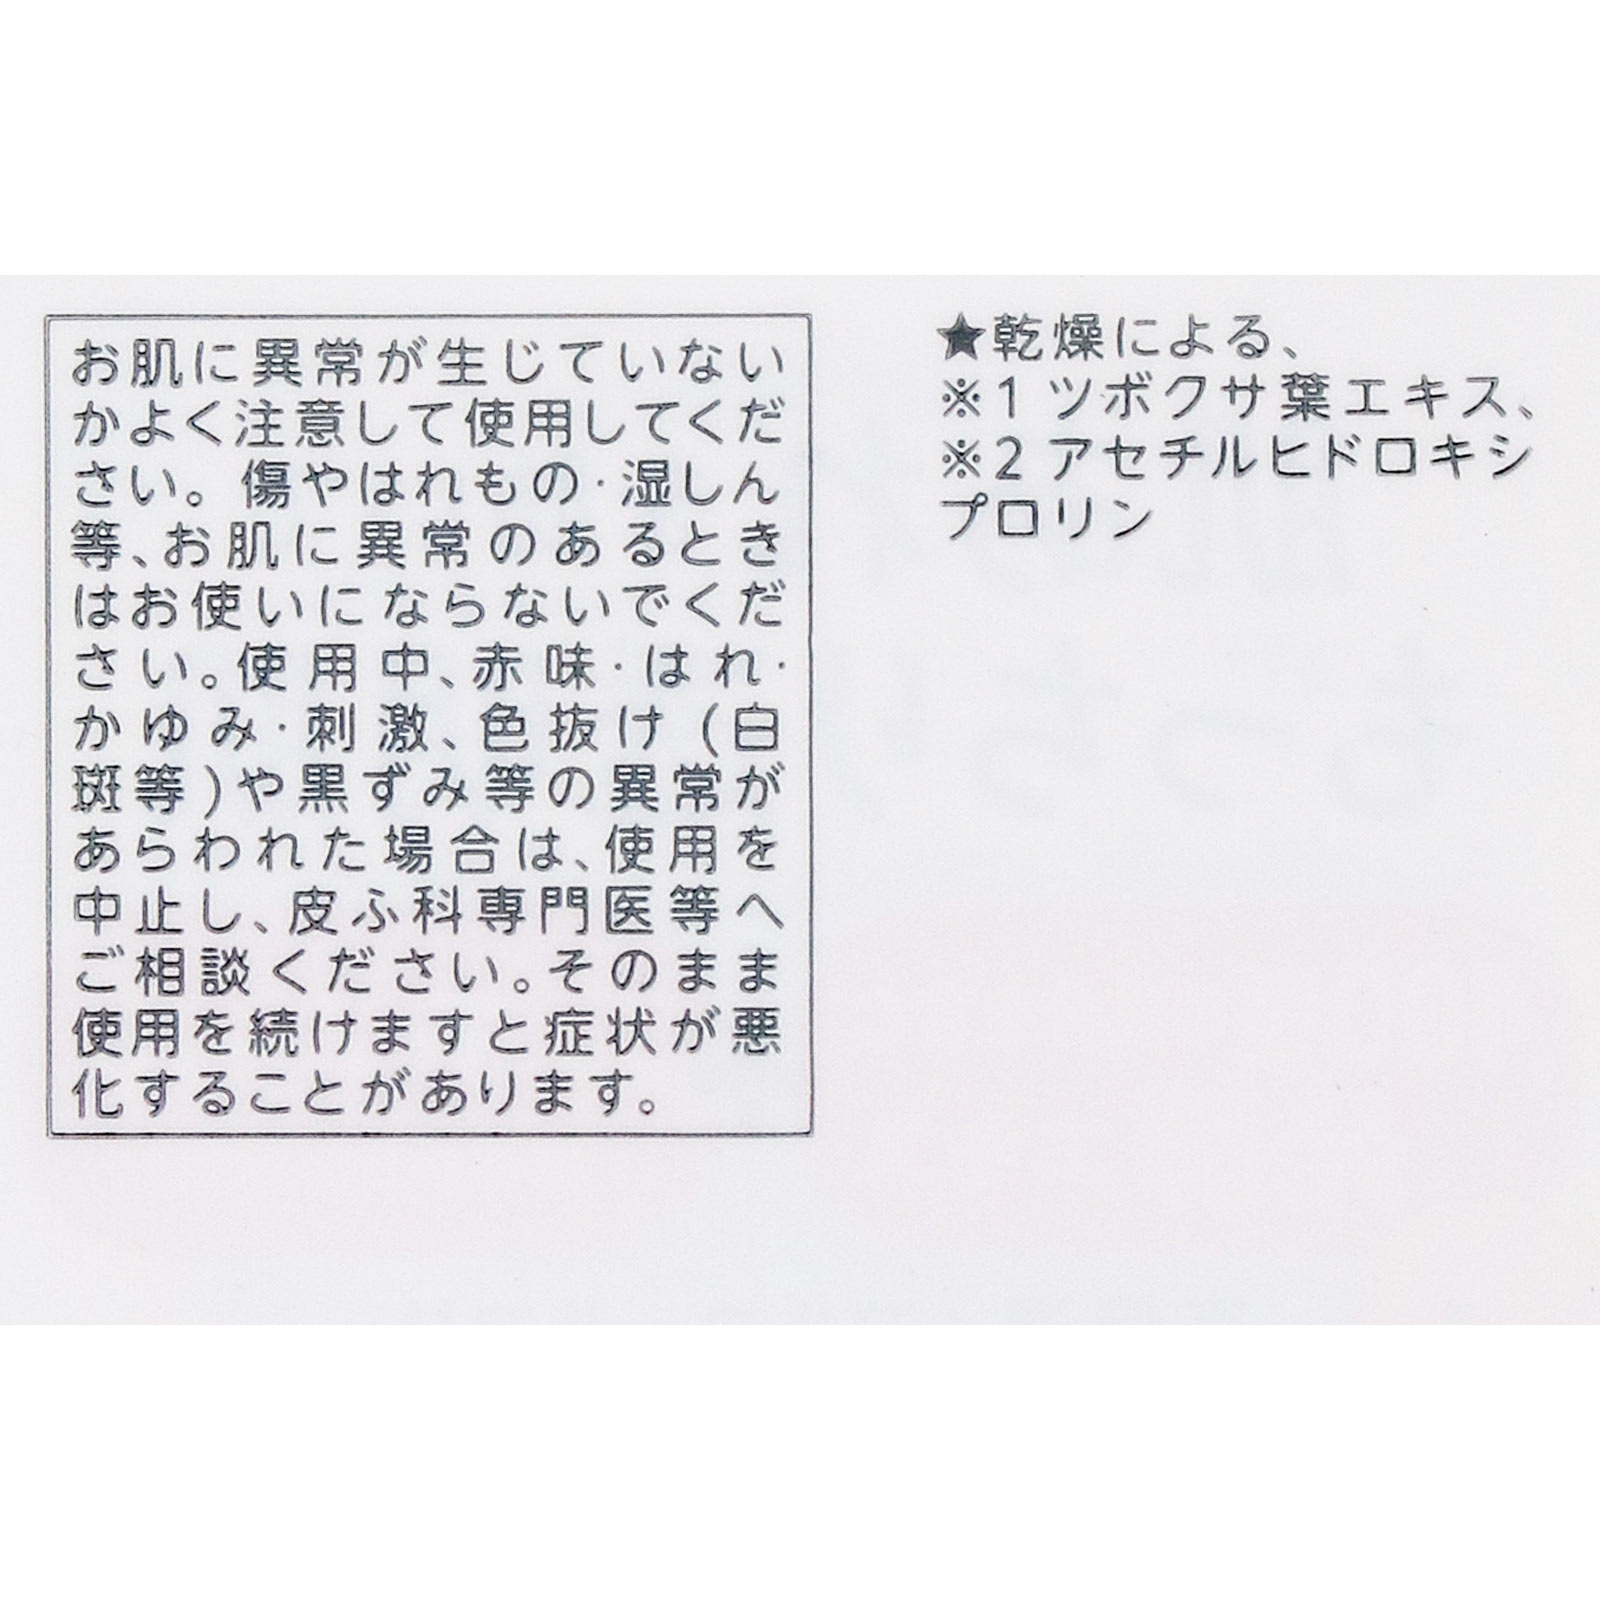 お肌に異常が生じていない
かよく注意して使用してくだ
さい。傷やはれもの・湿しん
等、お肌に異常のあるとき
はお使いにならないでくだ
さい。使用中、赤味・はれ・
かゆみ・刺激、色抜け(白
斑等)や黒ずみ等の異常が
あらわれた場合は、使用を
中止し、皮ふ科専門医等へ
ご相談ください。そのまま
使用を続けますと症状が悪
化することがあります。
★乾燥による、
※1 ツボクサ葉エキス、
※2 アセチルヒドロキシ
プロリン